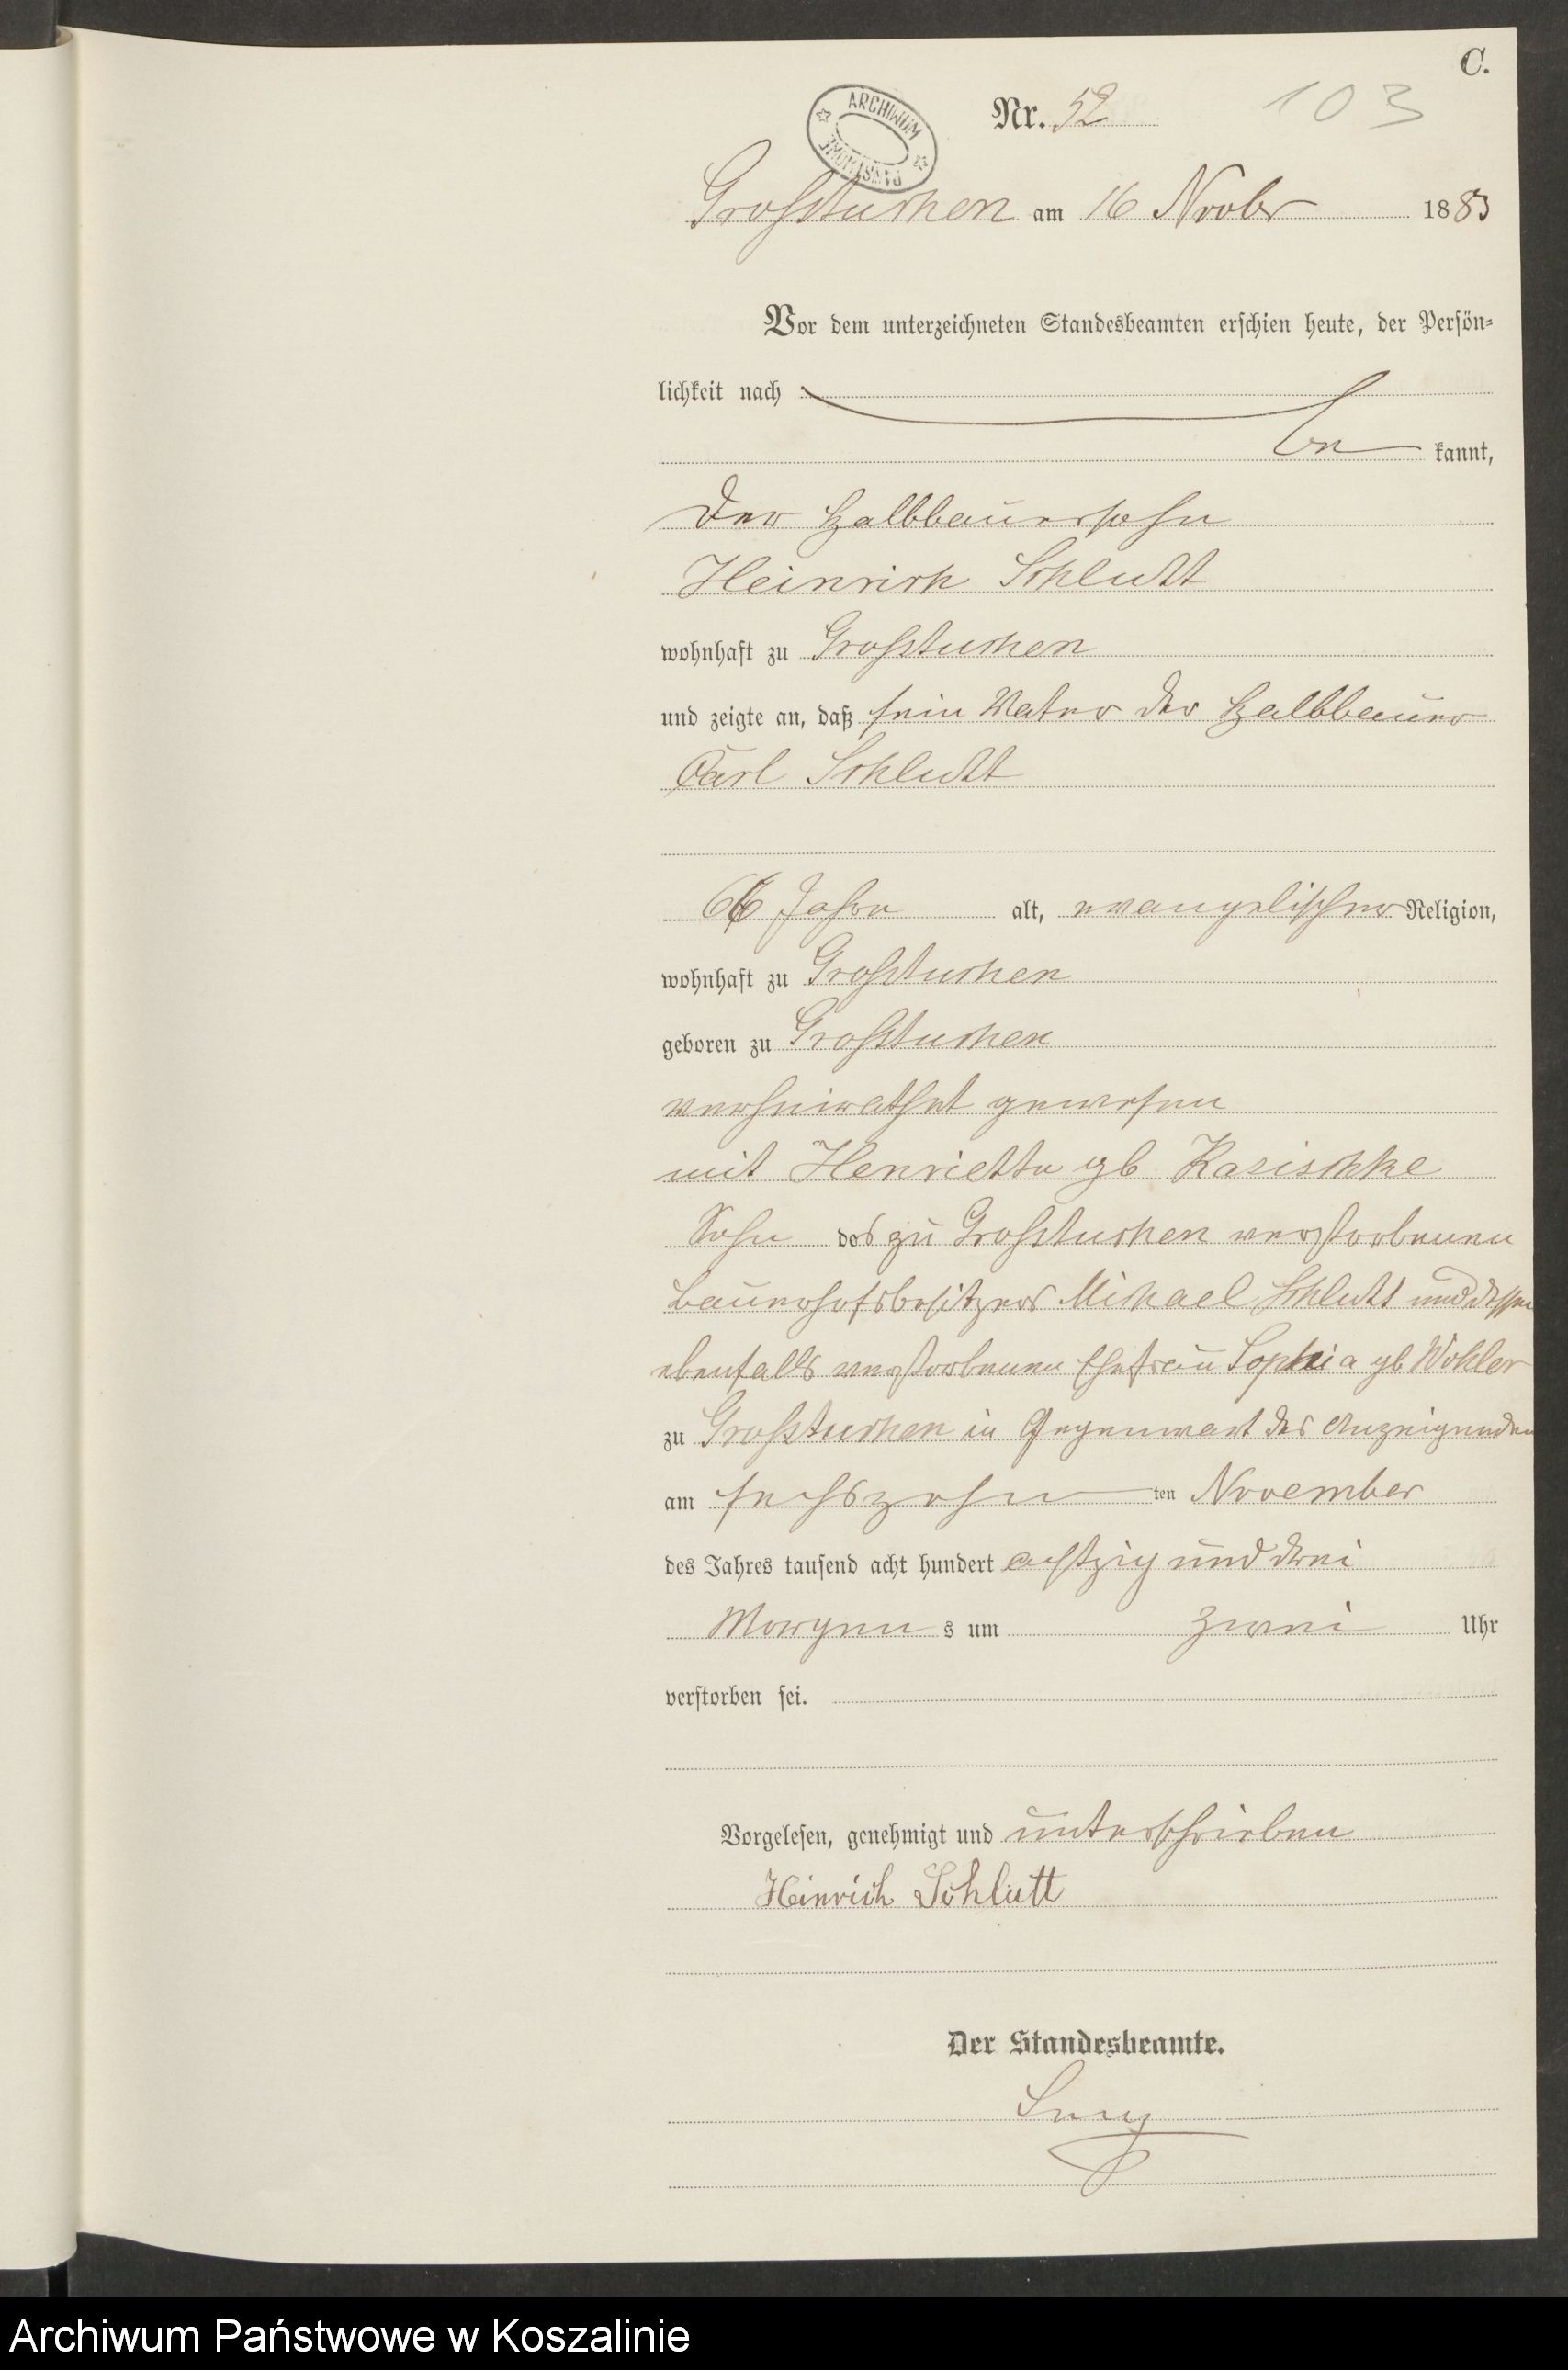 C.
Nr. 52 103
ARCHIWUM PAŃSTWOWE
Großtuchen am 16 Novbr 1883
Vor dem unterzeichneten Standesbeamten erschien heute, der Persön-
lichkeit nach
be kannt,
der Halbbauersohn
Heinrich Schlutt
wohnhaft zu Großtuchen
und zeigte an, daß sein Vater der Halbbauer
Carl Schlutt
66 Jahre alt, evangelischer Religion,
wohnhaft zu Großtuchen
geboren zu Großtuchen
verheirathet gewesen
mit Henriette gb Kasischke
Sohn des zu Großtuchen verstorbenen
Bauerhofsbesitzers Michael Schlutt und dessen
ebenfalls verstorbenen Ehefrau Sophia gb Wohler
zu Großtuchen in Gegenwart des Anzeigenden
am sechszehn ten November
des Jahres tausend acht hundert achtzig und drei
Morgen s um zwei Uhr
verstorben sei.
Vorgelesen, genehmigt und unterschrieben
Heinrich Schlutt
Der Standesbeamte.
Archiwum Państwowe w Koszalinie